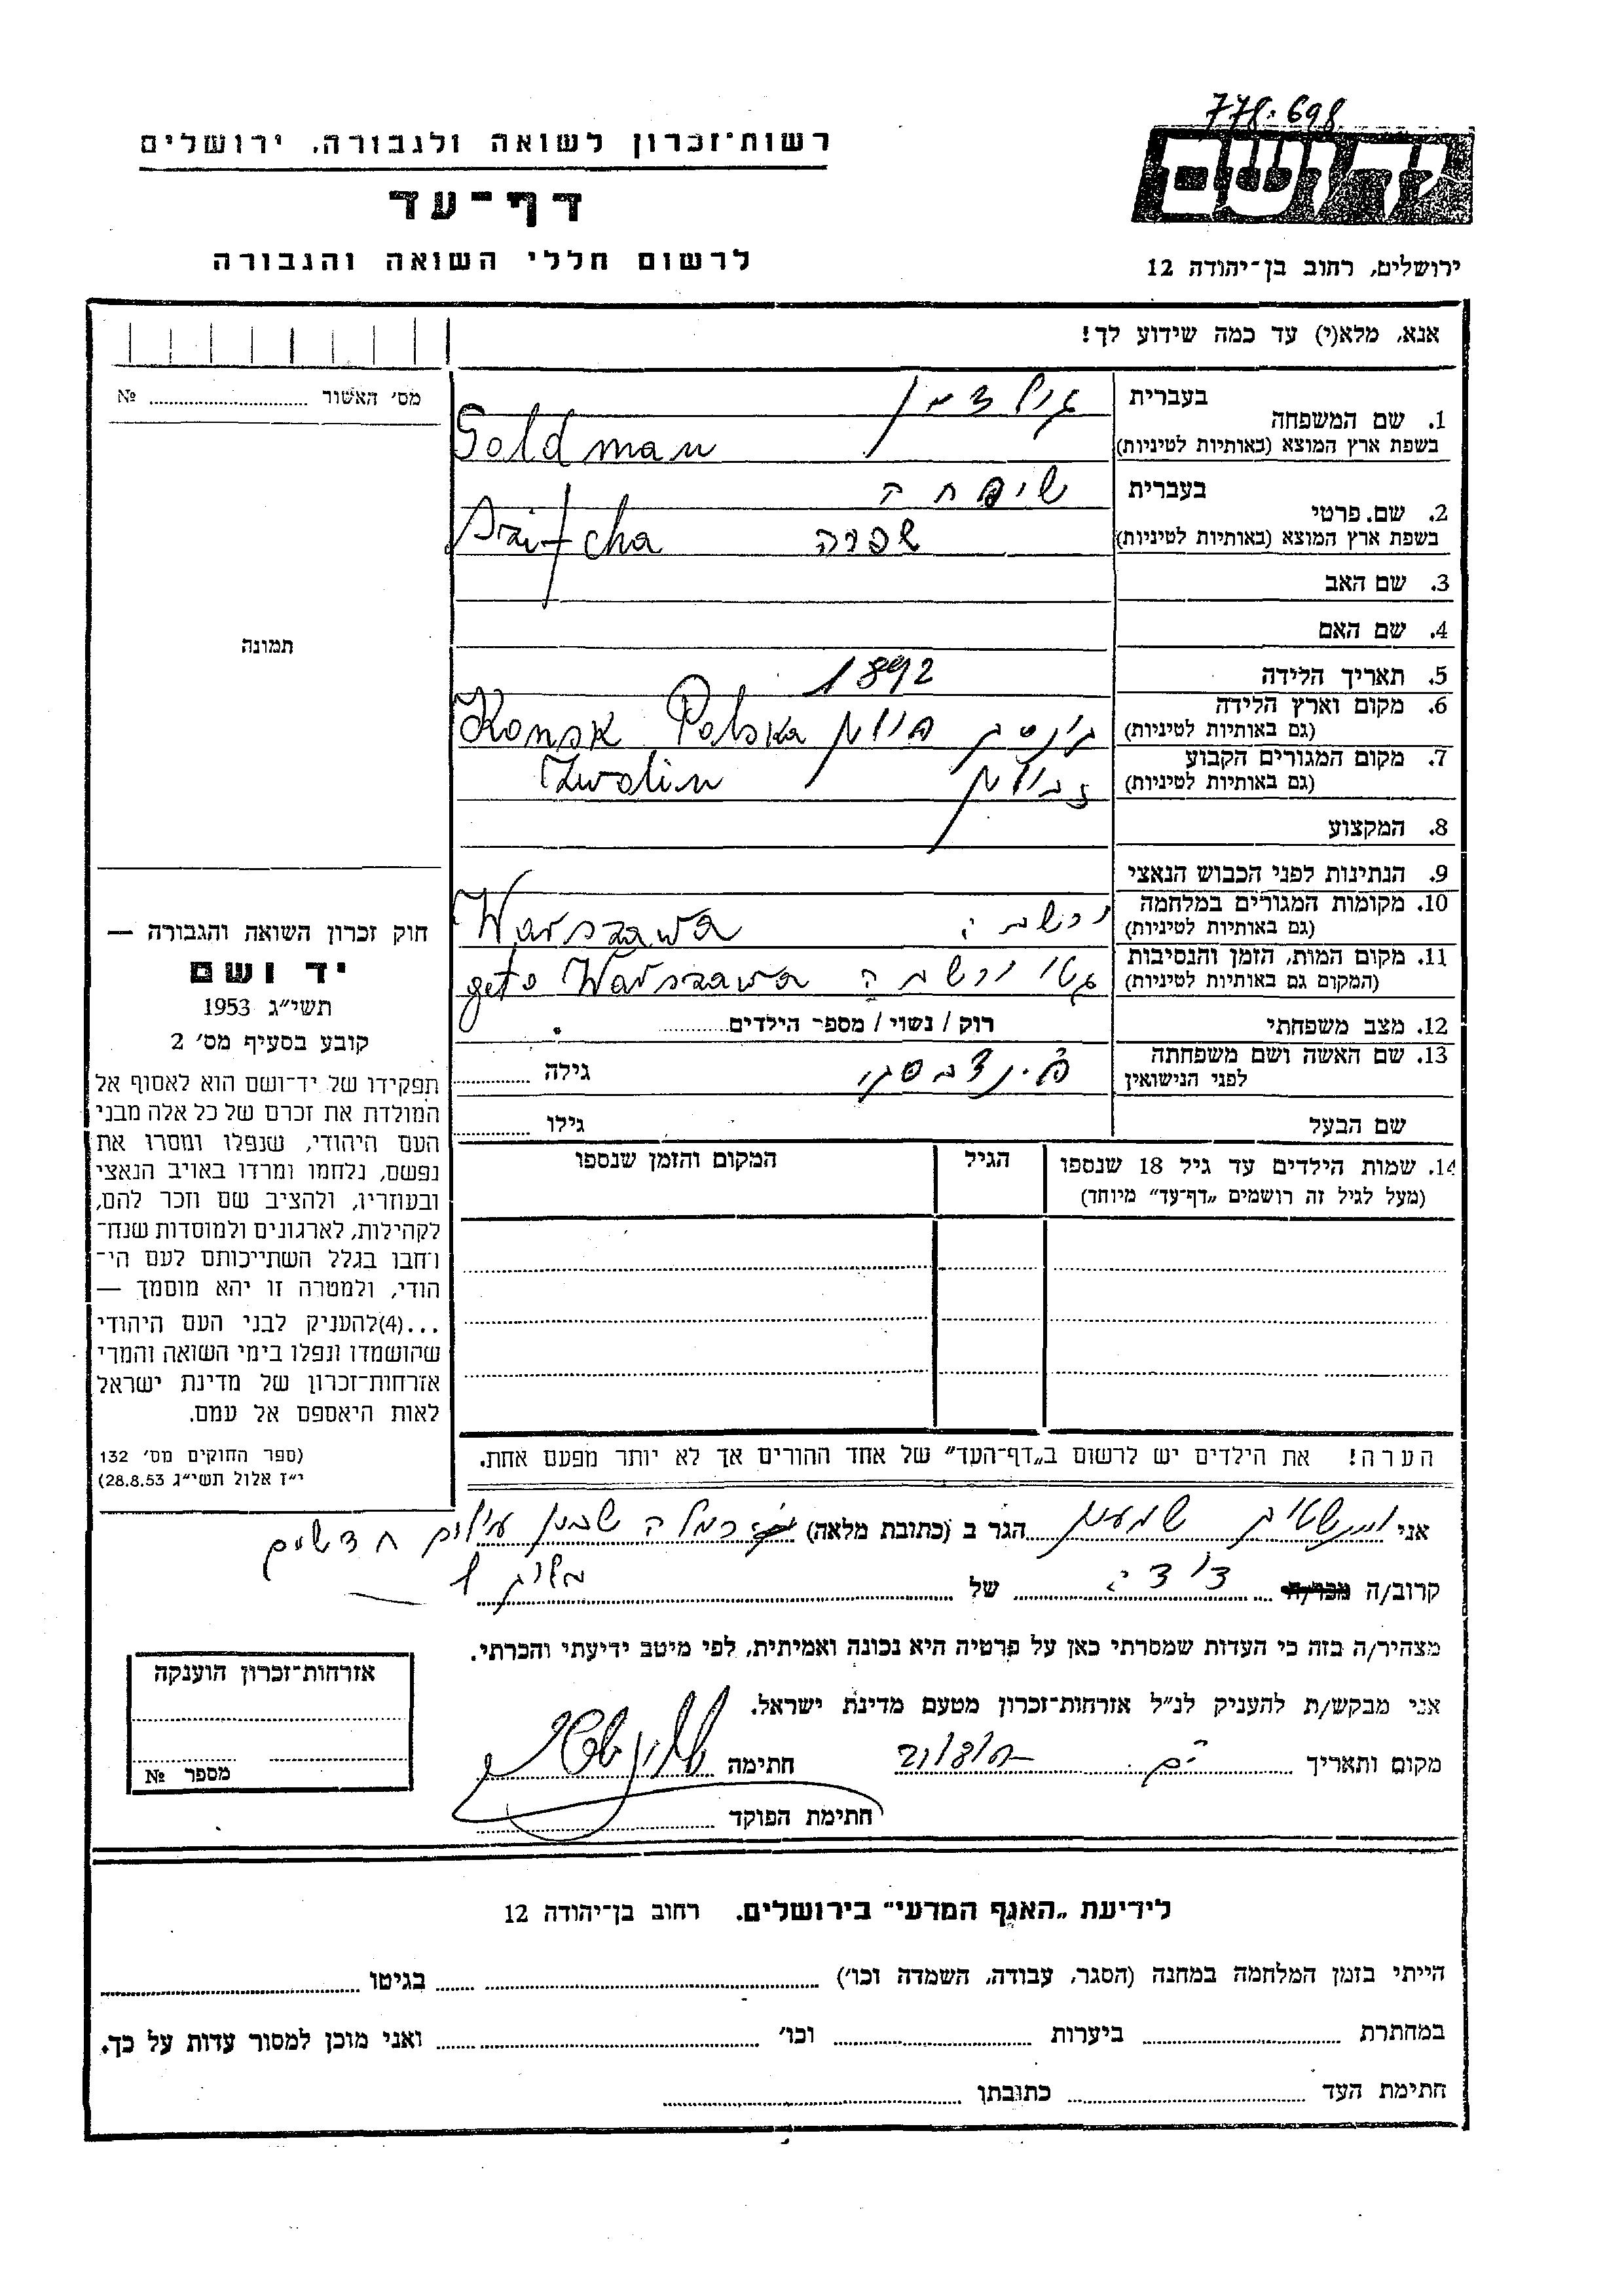 778.698
רשות־זכרון לשואה ולגבורה, ירושלים
יד ושם
דף־עד
לרשום חללי השואה והגבורה
ירושלים, רחוב בן־יהודה 12
אנא, מלא(י) עד כמה שידוע לך!
מס׳ האשור № 
1. שם המשפחה
בעברית גולדמן
בשפת ארץ המוצא (באותיות לטיניות) Goldman
2. שם. פרטי
בעברית שיפחה
בשפת ארץ המוצא (באותיות לטיניות) שפרה Szifcha
3. שם האב
4. שם האם
תמונה
5. תאריך הלידה 1892
6. מקום וארץ הלידה
(גם באותיות לטיניות) פולין Konsk Polska
7. מקום המגורים הקבוע
(גם באותיות לטיניות) זבולין Zwolin
8. המקצוע
9. הנתינות לפני הכבוש הנאצי
10. מקומות המגורים במלחמה
(גם באותיות לטיניות) ורשה Warszawa
11. מקום המות, הזמן והנסיבות
(המקום גם באותיות לטיניות) גטו ורשה geto Warszawa
12. מצב משפחתי רוק / נשוי / מספר הילדים
13. שם האשה ושם משפחתה
לפני הנישואין גילה
שם הבעל גילו
14. שמות הילדים עד גיל 18 שנספו הגיל המקום והזמן שנספו
(מעל לגיל זה רושמים „דף־עד״ מיוחד)
חוק זכרון השואה והגבורה —
יד ושם
תשי״ג 1953
קובע בסעיף מס׳ 2
תפקידו של יד־ושם הוא לאסוף אל
המולדת את זכרם של כל אלה מבני
העם היהודי, שנפלו ומסרו את
נפשם, נלחמו ומרדו באויב הנאצי
ובעוזריו, ולהציב שם וזכר להם,
לקהילות, לארגונים ולמוסדות שנח־
רחבו בגלל השתייכותם לעם הי־
הודי, ולמטרה זו יהא מוסמך —
...(4)להעניק לבני העם היהודי
שהושמדו ונפלו בימי השואה והמרי
אזרחות־זכרון של מדינת ישראל
לאות היאספם אל עמם.
(ספר החוקים מס׳ 132
י״ז אלול תשי״ג 28.8.53)
הערה! את הילדים יש לרשום ב„דף־העד״ של אחד ההורים אך לא יותר מפעם אחת.
אני שמעון הגר ב (כתובת מלאה)
קרוב/ה מכר/ה של
מצהיר/ה בזה כי העדות שמסרתי כאן על פרטיה היא נכונה ואמיתית, לפי מיטב ידיעתי והכרתי.
אני מבקש/ת להעניק לנ״ל אזרחות־זכרון מטעם מדינת ישראל.
מקום ותאריך חתימה
חתימת הפוקד
אזרחות־זכרון הוענקה
מספר №
לידיעת „האגף המדעי״ בירושלים. רחוב בן־יהודה 12
הייתי בזמן המלחמה במחנה (הסגר, עבודה, השמדה וכו׳) בגיטו
במחתרת ביערות וכו׳ ואני מוכן למסור עדות על כך.
חתימת העד כתובתו